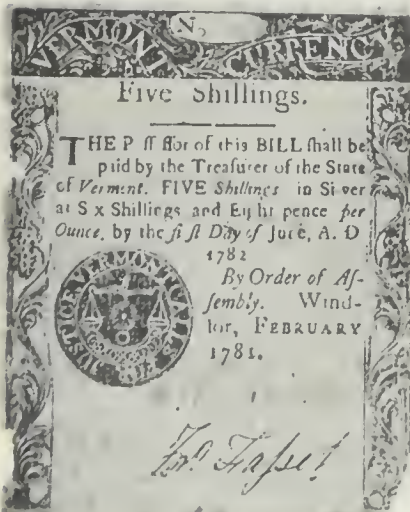 No
VERMONT CURRENC
Five Shillings.
THE P ſſ ſſor of this BILL ſhall be
paid by the Treaſurer of the State
of Vermont. FIVE Shillings in Si ver
at S x Shillings and Eight pence per
Ounce, by the fi ſt Day of June, A. D
1782
By Order of Aſ-
ſembly. Wind-
ſor, FEBRUARY
1781.
VERMON CALES